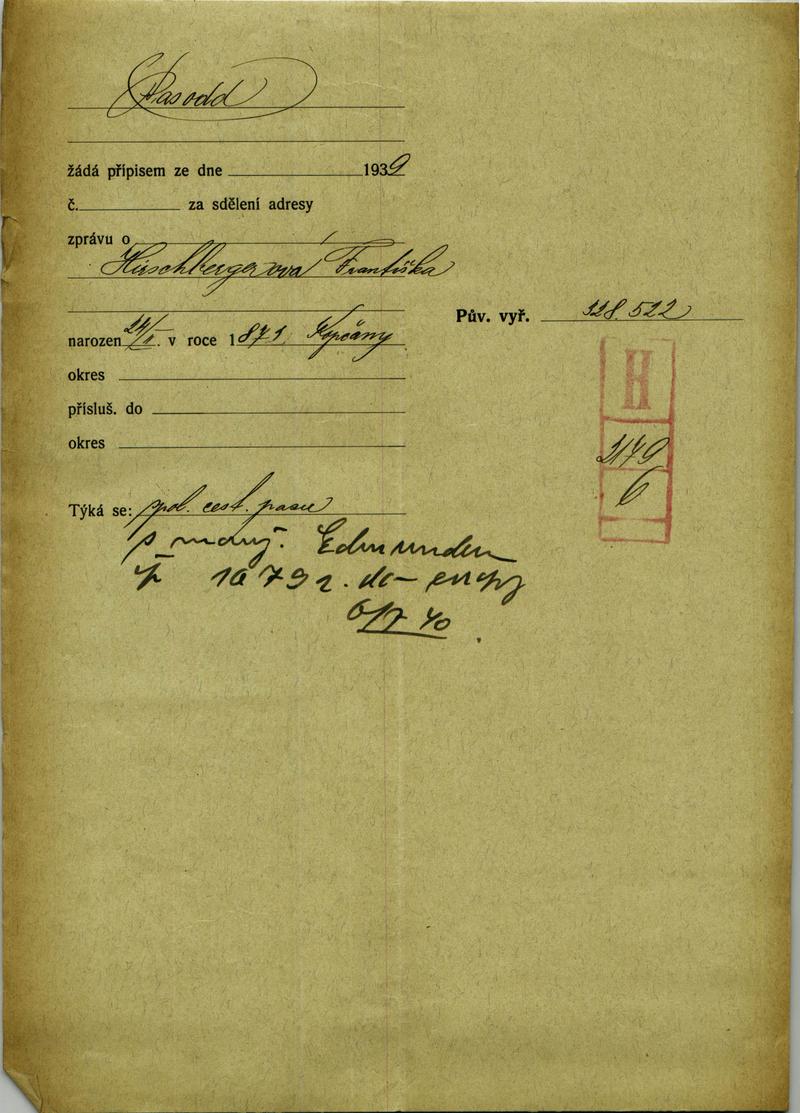 Pasodd
žádá přípisem ze dne 1939
č. za sdělení adresy
zprávu o
Hirschbergerova Františka
Pův. vyř. 328.522
narozen 24/II. v roce 1871 Kopčany
okres
přísluš. do
okres
H
2179
6
Týká se: spol. cest. pasu
s manž. Edmundem
10792. do Evropy
6/7 40